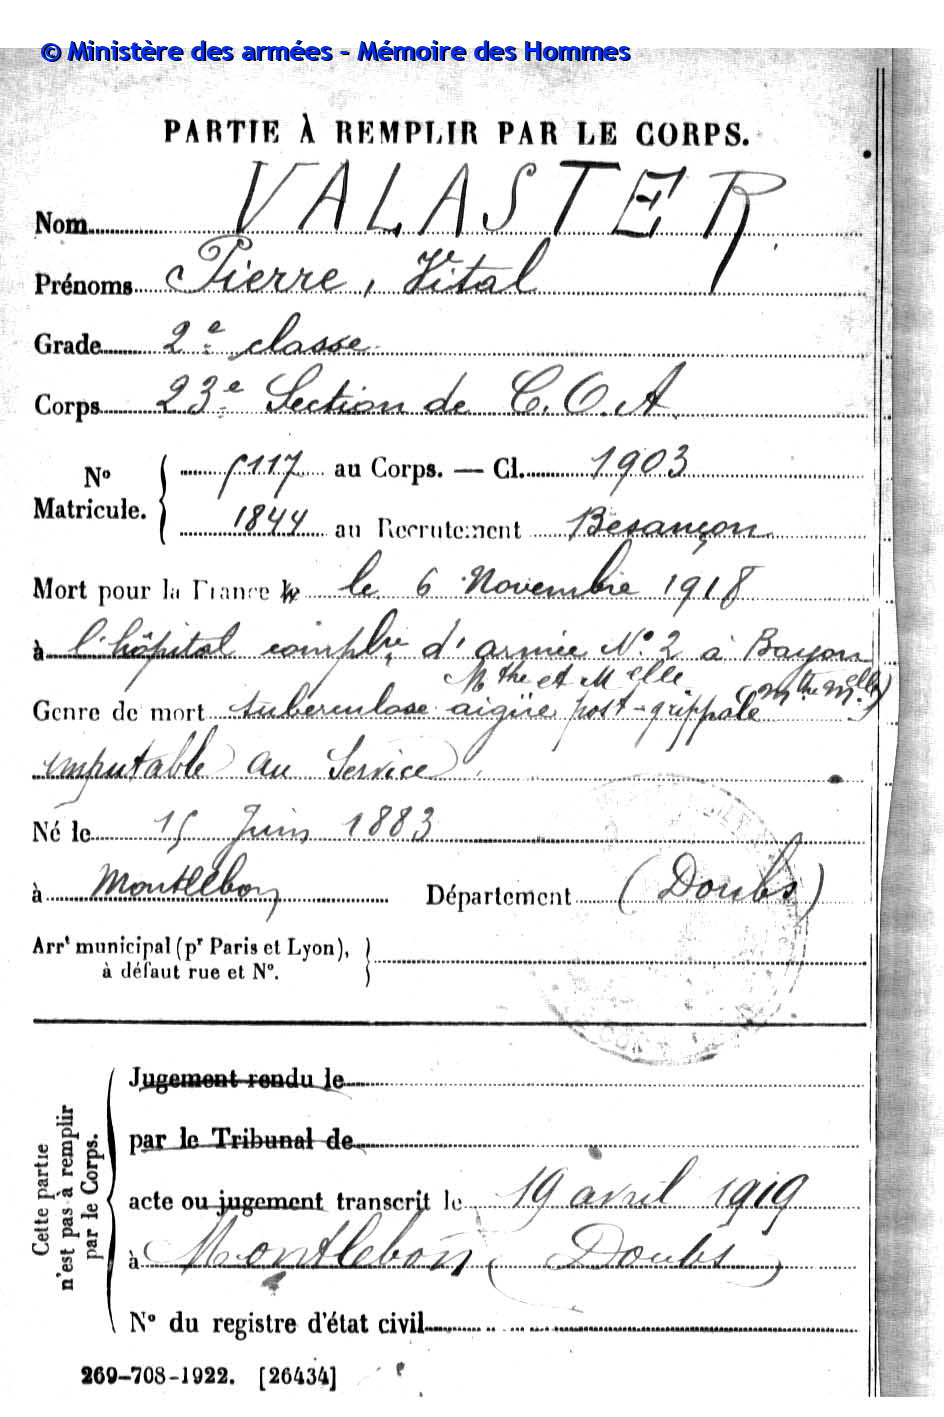 © Ministère des armées - Mémoire des Hommes
PARTIE À REMPLIR PAR LE CORPS.
Nom VALASTER
Prénoms Pierre, Vital
Grade 2e classe
Corps 23e Section de C.O.A.
No Matricule. { 5117 au Corps. — Cl. 1903
1844 au Recrutement Besançon
Mort pour la France le le 6 Novembre 1918
à l'hôpital complre d'armée No 2 à Bayon
Mthe et Melle
Genre de mort tuberculose aigüe post-grippale (Mthe Melle)
imputable au Service
Né le 15 Juin 1883
à Montlebon Département (Doubs)
Arrt municipal (pr Paris et Lyon),
à défaut rue et No.
Cette partie
n'est pas à remplir
par le Corps.
Jugement rendu le
par le Tribunal de
acte ou jugement transcrit le 19 avril 1919
à Montlebon (Doubs)
No du registre d'état civil
269-708-1922. [26434]